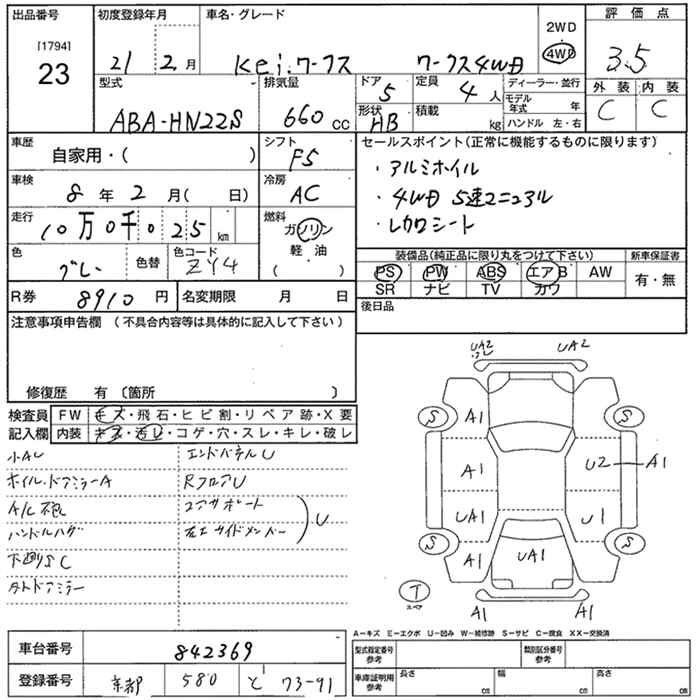 出品番号 初度登録年月 車名・グレード 2WD 評価点
[1794] 21 2月 Kei.ワークス ワークス4WD 4WD 3.5
23
型式 排気量 ドア 5 定員 4人 ディーラー・並行 外装 内装
ABA-HN22S 660CC 形状 AB 積載 kg モデル年式 年 C C
ハンドル 左・右
車歴 シフト セールスポイント(正常に機能するものに限ります)
自家用・( ) F5 ・アルミホイル
車検 冷房 ・4WD 5速マニュアル
8年2月( 日) AC ・レカロシート
走行 燃料
10万0千025km ガソリン
軽油
( )
色 グレー 色替 色コード ZY4
装備品(純正品に限り丸をつけて下さい) 新車保証書
PS PW ABS エアB AW 有・無
SR ナビ TV カワ
R券 8910円 名変期限 月 日 後日品
注意事項申告欄 (不具合内容等は具体的に記入して下さい)
修復歴 有 〔箇所 〕
検査員 FW キズ・飛石・ヒビ割・リペア跡・X要
記入欄 内装 キズ・汚レ・コゲ・穴・スレ・キレ・破レ
小AU エンドパネルU
ホイル.ドアミラーA RフロアU
A/C
ハンドルハゲ 右左サイドメンバー U
UA2 UA2
S A1 S
A1 U2 A1
UA1 U1
S A1 UA1 S
T スペア A1 A1
A－キズ E－エクボ U－凹み W－補修跡 S－サビ C－腐食 XX－交換済
車台番号 842369 型式指定番号 参考 類別区分番号 参考
登録番号 京都 580 と 73-91 車庫証明用 参考 長さ cm 幅 cm 高さ cm